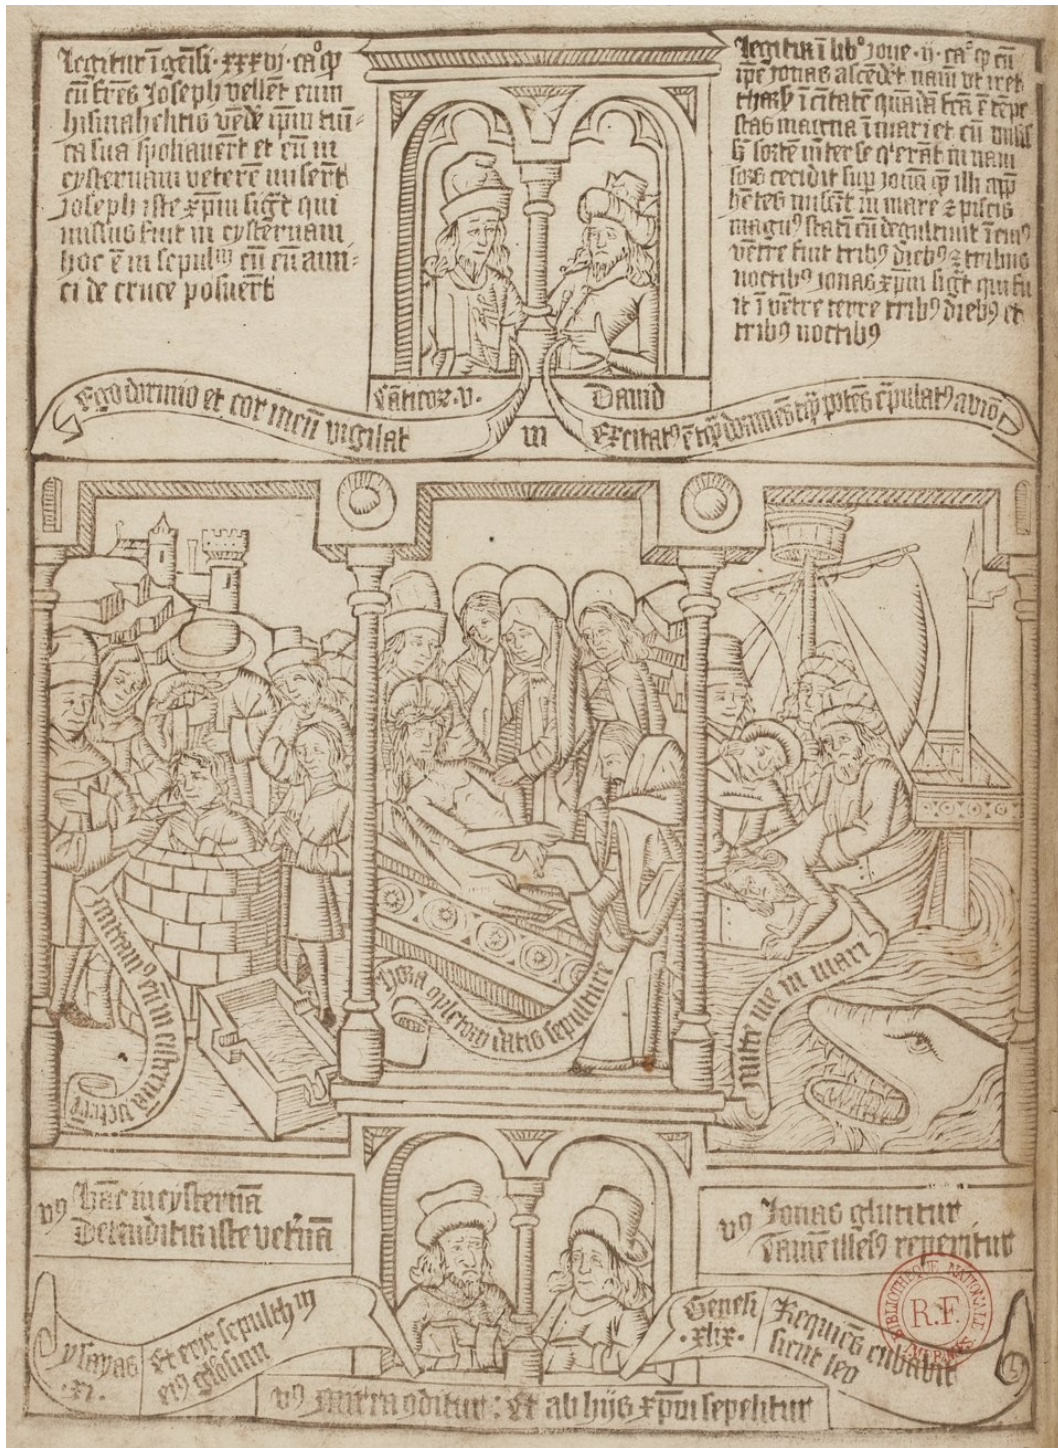 Legitur ī geñsi · xxxvi · cao̊ ꝙ
cū frēs Joseph vellēt eum
hismahelitis vēde᷑ ip̄m tuni=
ca sua spoliauer̄t et eū in
cysternam veterē miser̄t
Joseph iste xp̄m sigt̄ qui
missus fuit in cysternam
hoc ē in sepulcm̄ cū eū ami=
ci de cruce posuer̄t
Legitur ī libo̊ Jone · ij · cå ꝙ cū
ip̄e Jonas ascēdet nauī vt iret
tharsꝭ ī ciuitatē quādā fc̄a ē tēpe
stas magna ī mari et cū
sortē inter se in naui
sors cecidit suꝑ Jonā ꝙ illi app̄
hēn̄tes miser̄t in mare ⁊ piscis
magnꝰ statī eū degultiuit ī cuiꝰ
vētre fuit tribꝰ diebꝰ ⁊ tribus
noctibꝰ Jonas xp̄m sigt̄ qui fu
it ī vētre terre tribꝰ diebꝰ et
tribꝰ noctibꝰ
Cāticoꝝ · v ·
Dauid
Ego dormio et cor meū vigilat
in
Excitatꝰ ē dormiēs potēs
mittamꝰ eū in cisternā veterē
Hora sepulture
mitte me in mari
vꝰ Hūc in cysternā
Detruditur iste vet'nā
vꝰ Jonas glutitur
Tamē illesꝰ reperitur
ysayas
· xi ·
Et erit sepulchm̄
eiꝰ gl̄osum
Genesi
· xlix ·
Requiēs cubauit
sicut leo
vꝰ Mirra cōditur : Et ab hijs xp̄m sepelitur
BIBLIOTHEQUE NATIONALE
R.F.
IMPRIMES